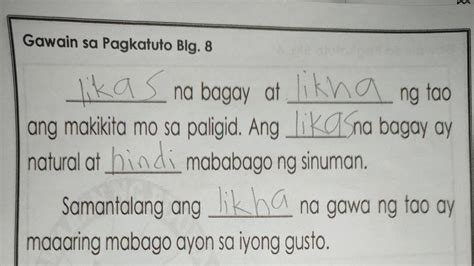 Gawain sa Pagkatuto Blg. 8
likas na bagay at likha ng tao
ang makikita mo sa paligid. Ang likas na bagay ay
natural at hindi mababago ng sinuman.
Samantalang ang likha na gawa ng tao ay
maaaring mabago ayon sa iyong gusto.